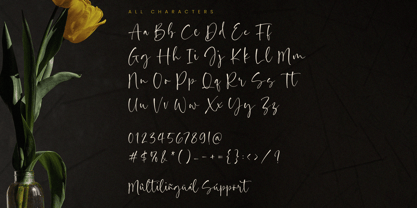 ALL CHARACTERS
Aa Bb Cc Dd Ee Ff
Gg Hh Ii Jj Kk Ll Mm
Nn Oo Pp Qq Rr Ss Tt
Uu Vv Ww Xx Yy Zz
0123456789!@
#$%&*()_-+={}:<>/?
Multilingual Support